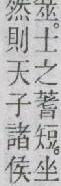 筮。士之蓍短。坐
然則天子諸侯